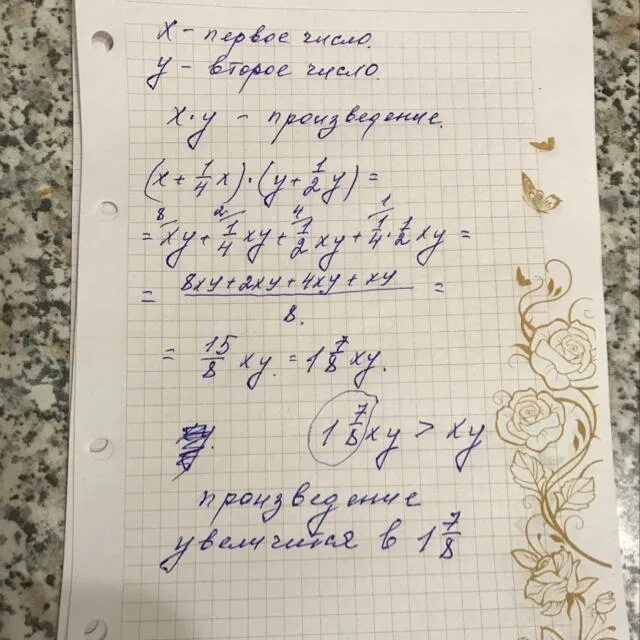 x - первое число.
y - второе число.
x·y - произведение.
(x + 1/4 x)·(y + 1/2 y) =
= xy + 1/4 xy + 1/2 xy + 1/4 · 1/2 xy =
8 2 4 1
= (8xy + 2xy + 4xy + xy)/8. =
= 15/8 xy = 1 7/8 xy.
1 7/8 xy > xy
произведение
увеличится в 1 7/8